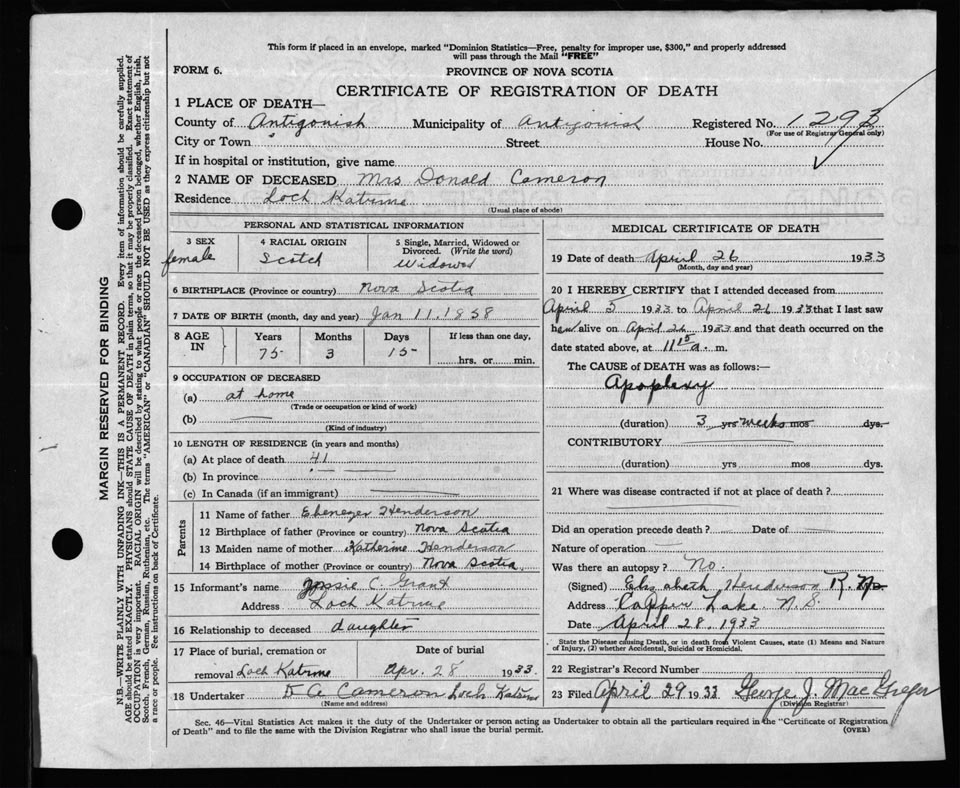 This form if placed in an envelope, marked "Dominion Statistics—Free, penalty for improper use, $300," and properly addressed
will pass through the Mail "FREE"
FORM 6.
PROVINCE OF NOVA SCOTIA
CERTIFICATE OF REGISTRATION OF DEATH
1 PLACE OF DEATH—
County of Antigonish Municipality of Antigonish Registered No. 1293
(For use of Registrar General only)
City or Town Street House No.
If in hospital or institution, give name
2 NAME OF DECEASED Mrs Donald Cameron
Residence Loch Katrine
(Usual place of abode)
PERSONAL AND STATISTICAL INFORMATION
3 SEX female
4 RACIAL ORIGIN Scotch
5 Single, Married, Widowed or Divorced. (Write the word) Widowed
6 BIRTHPLACE (Province or country) Nova Scotia
7 DATE OF BIRTH (month, day and year) Jan 11, 1858
8 AGE IN Years Months Days If less than one day,
75 3 15 hrs. or min.
9 OCCUPATION OF DECEASED
(a) at home
(Trade or occupation or kind of work)
(b)
(Kind of industry)
10 LENGTH OF RESIDENCE (in years and months)
(a) At place of death 41
(b) In province
(c) In Canada (if an immigrant)
Parents
11 Name of father Ebenezer Henderson
12 Birthplace of father (Province or country) Nova Scotia
13 Maiden name of mother Katherine Henderson
14 Birthplace of mother (Province or country) Nova Scotia.
15 Informant's name Jessie C. Grant
Address Loch Katrine
16 Relationship to deceased daughter
17 Place of burial, cremation or Date of burial
removal Loch Katrine Apr. 28 1933.
18 Undertaker D A Cameron Loch Katrine
(Name and address)
MEDICAL CERTIFICATE OF DEATH
19 Date of death April 26 1933
(Month, day and year)
20 I HEREBY CERTIFY that I attended deceased from
April 5 1933 to April 26 1933 that I last saw
her alive on April 26 1933 and that death occurred on the
date stated above, at 11 15 a. m.
The CAUSE of DEATH was as follows:—
Apoplexy
(duration) 3 yrs weeks mos dys.
CONTRIBUTORY
(duration) yrs mos dys.
21 Where was disease contracted if not at place of death?
Did an operation precede death? Date of
Nature of operation
Was there an autopsy? No.
(Signed) Elizabeth Henderson R. N.
Address Copper Lake N.S.
Date April 28, 1933
State the Disease causing Death, or in death from Violent Causes, state (1) Means and Nature
of Injury, (2) whether Accidental, Suicidal or Homicidal.
22 Registrar's Record Number
23 Filed April 29 1933 George J. MacGregor
(Division Registrar)
Sec. 46—Vital Statistics Act makes it the duty of the Undertaker or person acting as Undertaker to obtain all the particulars required in the "Certificate of Registration
of Death" and to file the same with the Division Registrar who shall issue the burial permit.
(OVER)
MARGIN RESERVED FOR BINDING
N.B.—WRITE PLAINLY WITH UNFADING INK—THIS IS A PERMANENT RECORD. Every item of information should be carefully supplied.
AGE should be stated EXACTLY. PHYSICIANS should STATE CAUSE OF DEATH in plain terms, so that it may be properly classified. Exact statement of
OCCUPATION is very important. RACIAL ORIGIN will be described by stating to what people or race the deceased person belonged, whether English, Irish,
Scotch, French, German, Russian, Ruthenian, etc. The terms "AMERICAN" or "CANADIAN" SHOULD NOT BE USED as they express citizenship but not
a race or people. See instructions on back of Certificate.